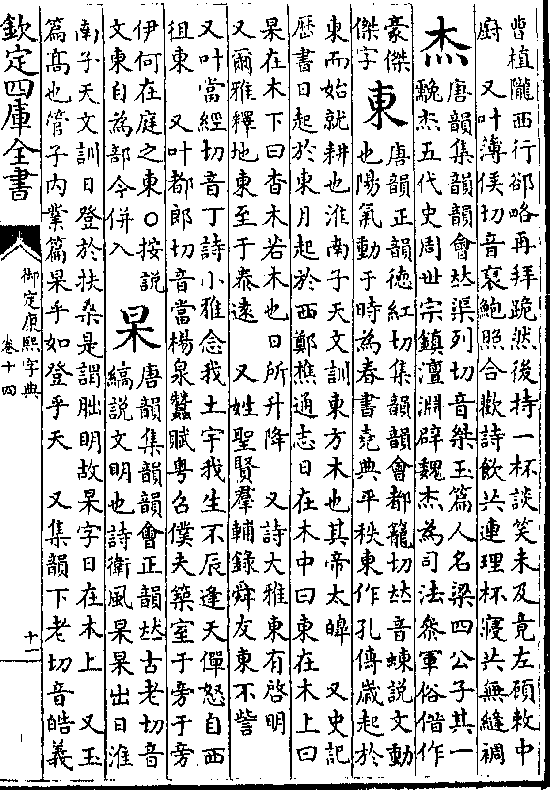 曹植隴西行卻略再拜跪然後持一杯談笑未及竟左顧敕中
廚 又叶薄侯切音裒鮑照合歡詩飲共連理杯寢共無縫裯
杰 唐韻集韻韻會𠀤渠列切音桀玉篇人名梁四公子其一
𩦎杰五代史周世宗鎮澶淵辟魏杰為司法參軍俗借作
豪傑
傑字 東 唐韻正韻德紅切集韻韻會都籠切𠀤音蝀說文動
也陽氣動于時為春書堯典平秩東作孔傳歲起於
東而始就耕也淮南子天文訓東方木也其帝太皥 又史記
歷書日起於東月起於西鄭樵通志日在木中曰東在木上曰
杲在木下曰杳木若木也日所升降 又詩大雅東有啓明
又爾雅釋地東至于泰遠 又姓聖賢羣輔錄舜友東不訾
又叶當經切音丁詩小雅念我土宇我生不辰逢天僤怒自西
徂東 又叶都郎切音當楊泉蠶賦粵召僕夫築室于旁于旁
伊何在庭之東○按說
文東自為部今併入 杲 唐韻集韻韻會正韻𠀤古老切音
縞說文明也詩衛風杲杲出日淮
南子天文訓日登於扶桑是謂朏明故杲字日在本上 又玉
篇髙也管子內業篇杲乎如登乎天 又集韻下老切音皓義
欽定四庫全書
御定康熙字典
卷十四
十一